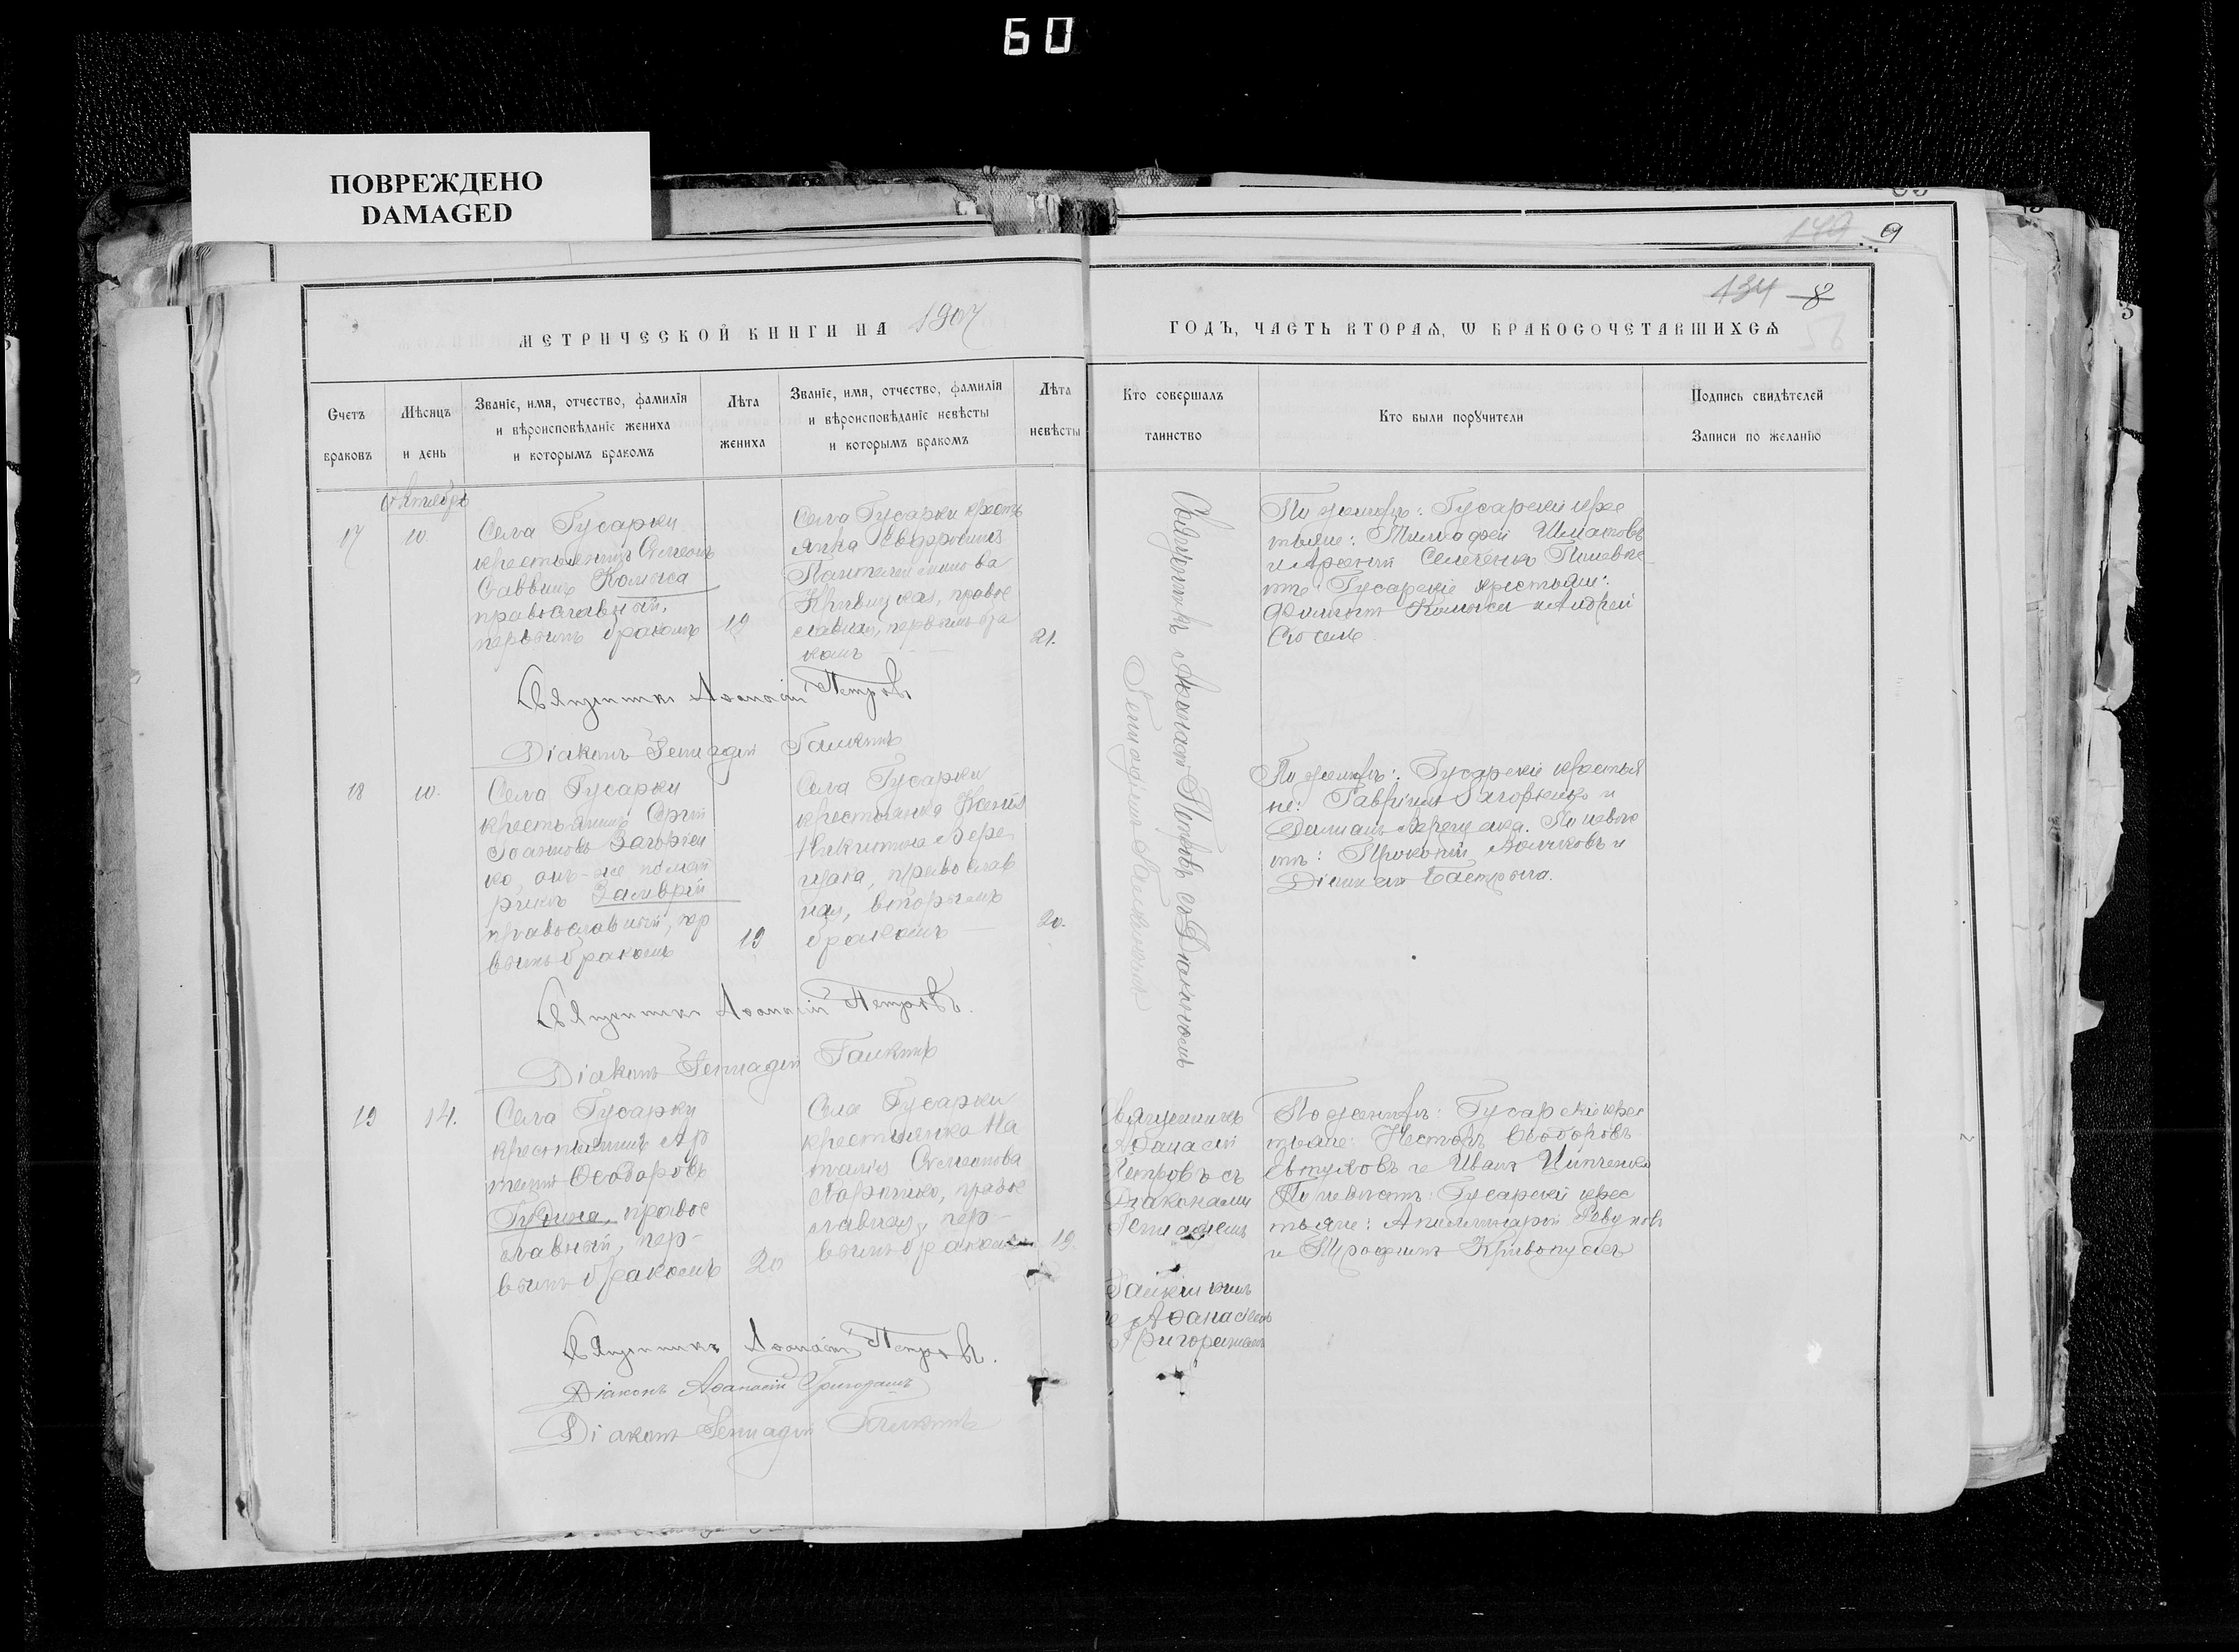 60
ПОВРЕЖДЕНО
DAMAGED
149 9
134 8
56
МЕТРИЧЕСКОЙ КНИГИ НА 1907
ГОДЪ, ЧАСТЬ ВТОРАѦ, Ѡ БРАКОСОЧЕТАВШИХСѦ
Счетъ
браковъ
Мѣсяцъ
и день
Званіе, имя, отчество, фамилія
и вѣроисповѣданіе жениха
и которымъ бракомъ
Лѣта
жениха
Званіе, имя, отчество, фамилія
и вѣроисповѣданіе невѣсты
и которымъ бракомъ
Лѣта
невѣсты
Кто совершалъ
таинство
Кто были порꙋчители
Подпись свидѣтелей
Записи по желанію
Октябрь
17
10.
Села Гусарки
крестьянинъ Симеонъ
Саввинъ Колыса
православный,
первымъ бракомъ
19
Села Гусарки крест
Анна
Пантелеимонова
правос
славная, первымъ бра
комъ
21.
Священникъ Аѳанасій Петровъ съ Діакономъ
Геннадіемъ Галкинымъ
По женихѣ: Гусарскіе крес
тьяне: Шматовъ
и Арсеній По невѣс
тѣ: Гусарскіе крестьяне:
Филиппъ Колыса и Андрей
Священникъ Аѳанасій Петровъ
Діаконъ Геннадій Галкинъ
18
10.
Села Гусарки
крестьянинъ Сергій
Іоанновъ Загорѣй
ко, онъ-же по мат
православный, пер
вымъ бракомъ
19
Села Гусарки
крестьянка Ксенія
Никитина Вере
щака, православ
ная, вторымъ
бракомъ
20.
По женихѣ: Гусарскіе крестья
не: Гавріилъ и
Даміанъ Верещака. По невѣс
тѣ: Прокопій и
Священникъ Аѳанасій Петровъ.
Діаконъ Геннадій Галкинъ
19
14.
Села Гусарки
крестьянинъ Ар
темій Ѳеодоровъ
Гудина, правос
славный, пер-
вымъ бракомъ
20
Села Гусарки
крестьянка На
талія Симеонова
правос
лавная, пер-
вымъ бракомъ
19.
Священникъ
Аѳанасій
Петровъ съ
Діаконами
Геннадіемъ
Галкинымъ
и Аѳанасіемъ
По женихѣ: Гусарскіе крес
тьяне: Несторъ Ѳеодоровъ
Евтуховъ и Иванъ
По невѣстѣ: Гусарскіе крес
тьяне: Аполлинарій Ревуновъ
и Трофимъ Кривопусъ
Священникъ Аѳанасій Петровъ.
Діаконъ Аѳанасій
Діаконъ Геннадій Галкинъ